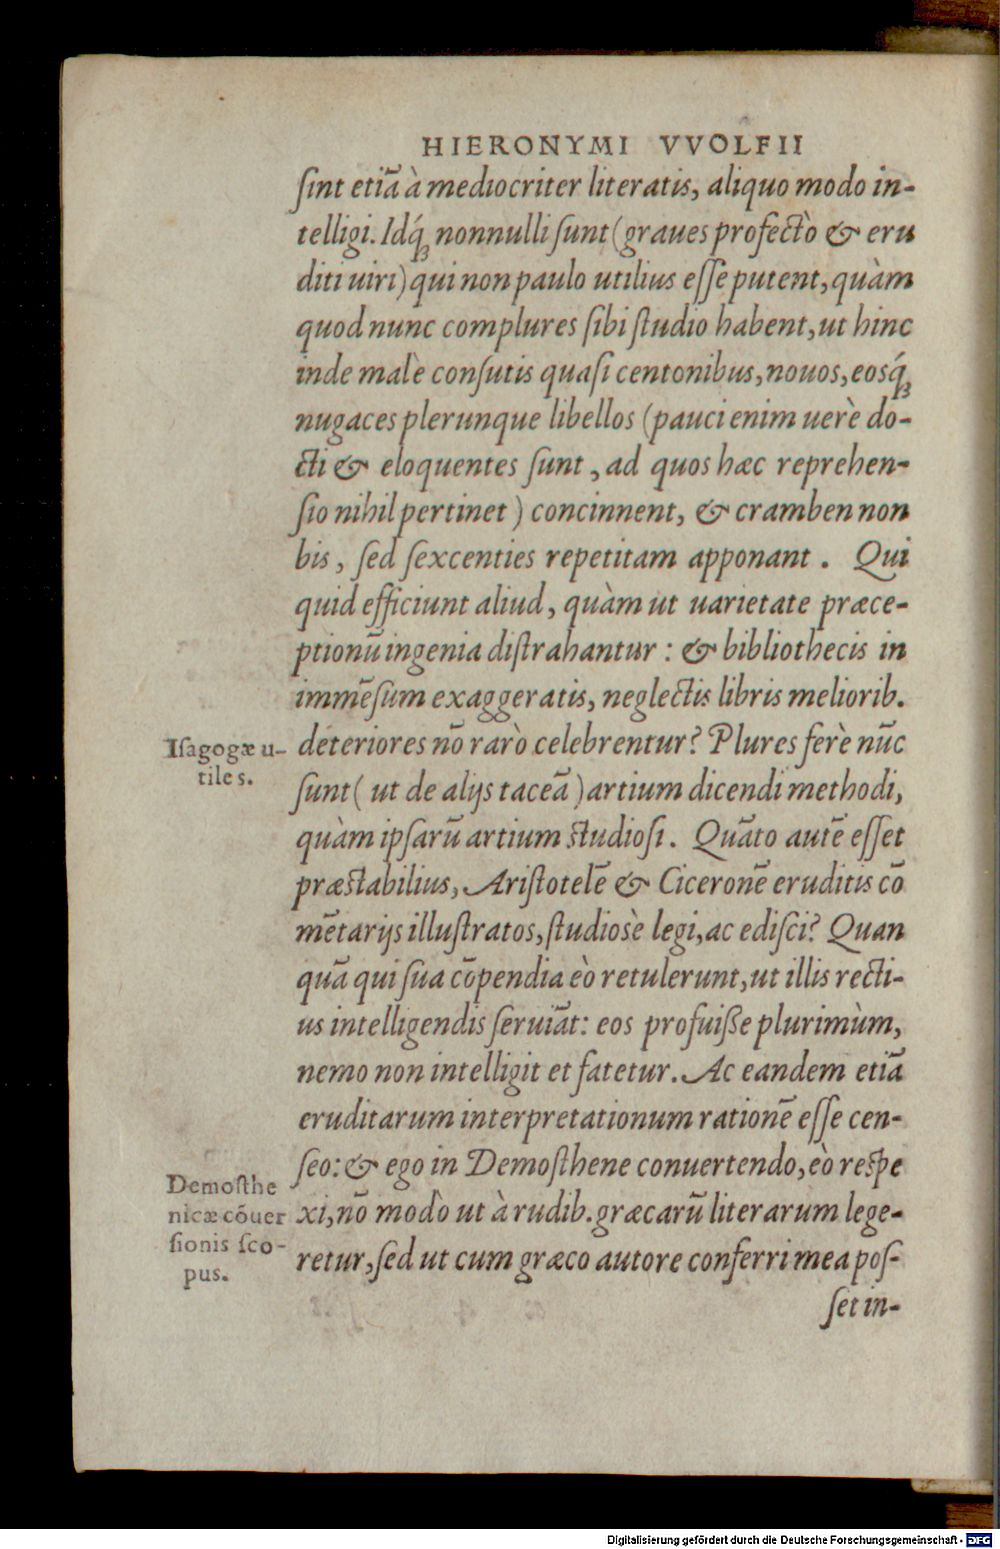 HIERONYMI VVOLFII
sint etiā à mediocriter literatis, aliquo modo in-
telligi. Idq́ꝫ nonnulli sunt (graues profectò & eru
diti uiri) qui non paulo utilius esse putent, quàm
quod nunc complures sibi studio habent, ut hinc
inde malè consutis quasi centonibus, nouos, eosq́ꝫ
nugaces plerunque libellos (pauci enim uerè do-
cti & eloquentes sunt, ad quos hæc reprehen-
sio nihil pertinet) concinnent, & cramben non
bis, sed sexcenties repetitam apponant. Qui
quid efficiunt aliud, quàm ut uarietate præce-
ptionū ingenia distrahantur: & bibliothecis in
immēsum exaggeratis, neglectis libris meliorib.
Isagogæ u-
tiles.
deteriores nō rarò celebrentur? Plures ferè nūc
sunt (ut de alijs taceā) artium dicendi methodi,
quàm ipsarū artium studiosi. Quāto autē esset
præstabilius, Aristotelē & Ciceronē eruditis cō
mētarijs illustratos, studiosè legi, ac edisci? Quan
quā qui sua cōpendia eò retulerunt, ut illis recti-
us intelligendis seruiāt: eos profuisse plurimùm,
nemo non intelligit et fatetur. Ac eandem etiā
eruditarum interpretationum rationē esse cen-
seo: & ego in Demosthene conuertendo, eò respe
Demosthe
nicæ cōuer
sionis sco-
pus.
xi, nō modò ut à rudib. græcarū literarum lege-
retur, sed ut cum græco autore conferri mea pos-
set in-
Digitalisierung gefördert durch die Deutsche Forschungsgemeinschaft - DFG